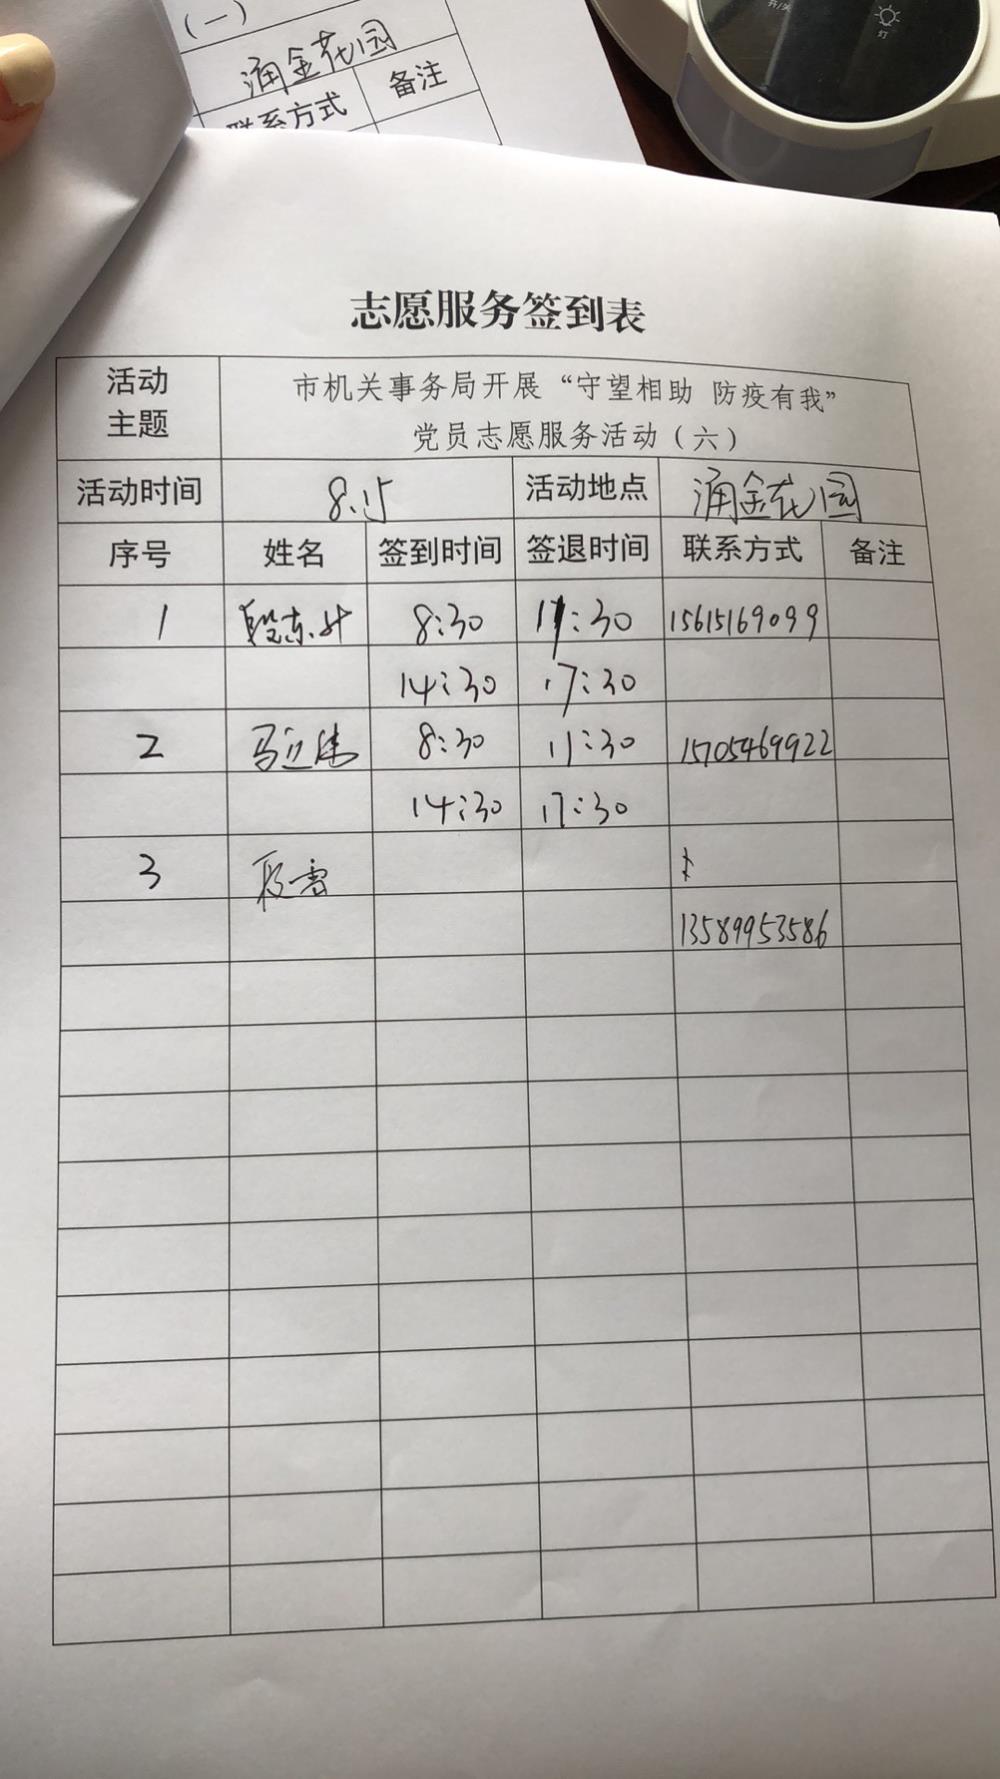 （一）
涌金花园
联系方式 备注
开/关
灯
志愿服务签到表
活动主题 市机关事务局开展“守望相助 防疫有我”
党员志愿服务活动（六）
活动时间 8.15 活动地点 涌金花园
序号 姓名 签到时间 签退时间 联系方式 备注
1 8:30 11:30 15615169099
14:30 17:30
2 8:30 11:30 15705469922
14:30 17:30
3
13589953586